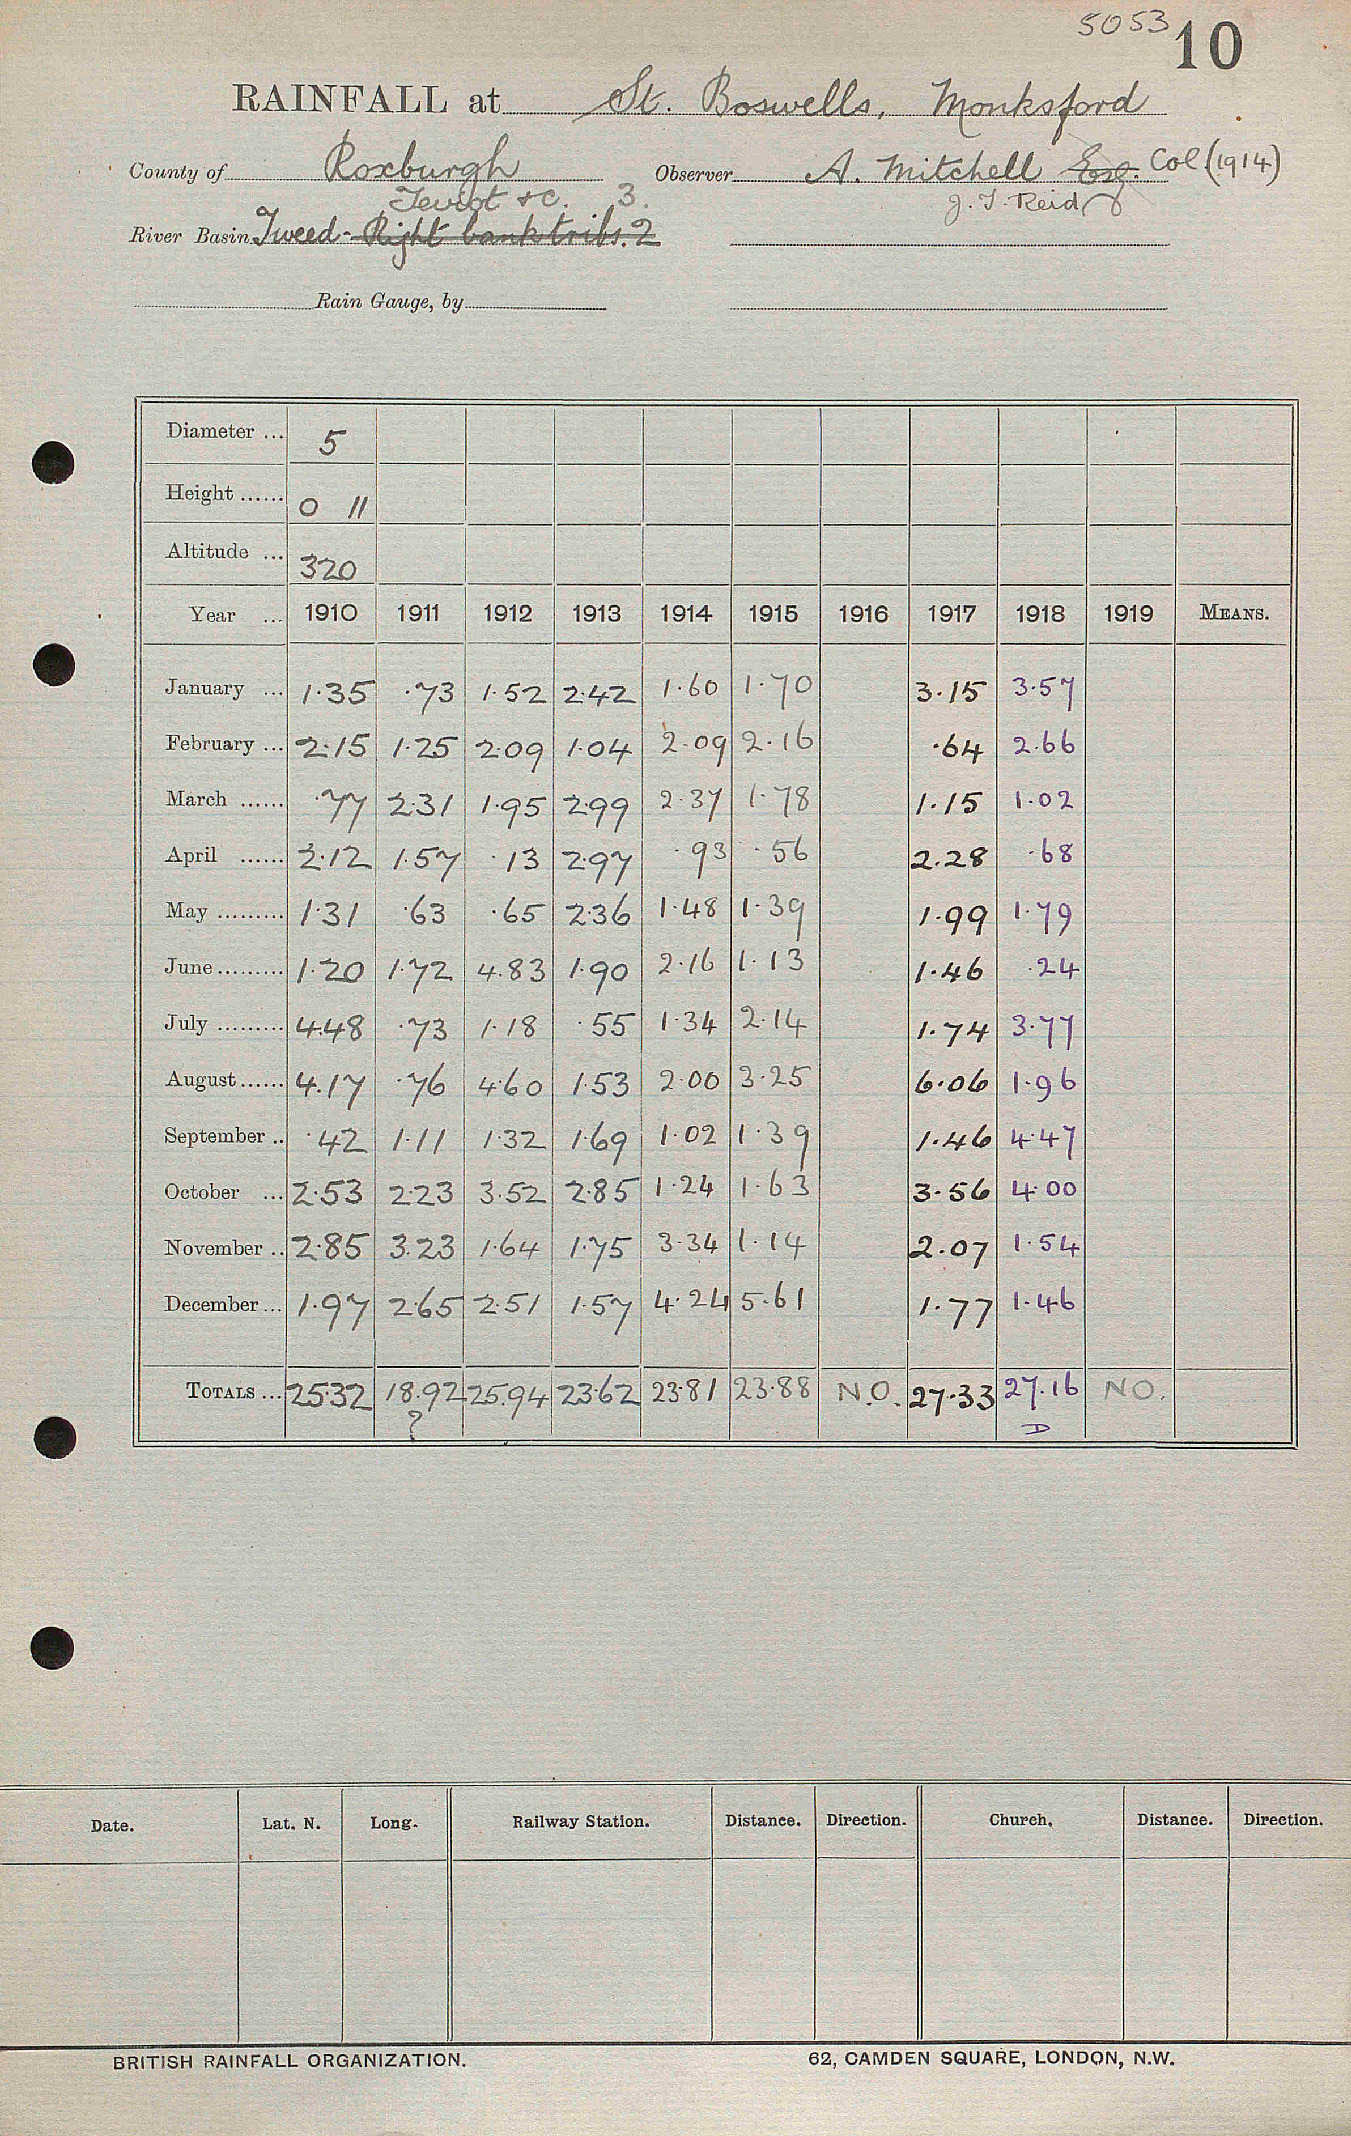 5053 10
RAINFALL at St. Boswells, Monksford
County of Roxburgh Observer A. Mitchell Esq. Col (1914)
Teviot &c. 3. J. T. Reid
River Basin Tweed - Right bank tribs. 2
Rain Gauge, by
Diameter ... 5
Height ...... 0 11
Altitude ... 320
Year ... 1910 1911 1912 1913 1914 1915 1916 1917 1918 1919 MEANS.
January ... 1.35 .73 1.52 2.42 1.60 1.70 3.15 3.57
February ... 2.15 1.25 2.09 1.04 2.09 2.16 .64 2.66
March ...... .77 2.31 1.95 2.99 2.37 1.78 1.15 1.02
April ...... 2.12 1.57 .13 2.97 .93 .56 2.28 .68
May ......... 1.31 .63 .65 2.36 1.48 1.39 1.99 1.79
June ......... 1.20 1.72 4.83 1.90 2.16 1.13 1.46 .24
July ......... 4.48 .73 1.18 .55 1.34 2.14 1.74 3.77
August ...... 4.17 .76 4.60 1.53 2.00 3.25 6.06 1.96
September .. .42 1.11 1.32 1.69 1.02 1.39 1.46 4.47
October ... 2.53 2.23 3.52 2.85 1.24 1.63 3.56 4.00
November .. 2.85 3.23 1.64 1.75 3.34 1.14 2.07 1.54
December ... 1.97 2.65 2.51 1.57 4.24 5.61 1.77 1.46
TOTALS ... 25.32 18.92 25.94 23.62 23.81 23.88 N.O. 27.33 27.16 NO.
? D
Date. Lat. N. Long. Railway Station. Distance. Direction. Church. Distance. Direction.
BRITISH RAINFALL ORGANIZATION. 62, CAMDEN SQUARE, LONDON, N.W.